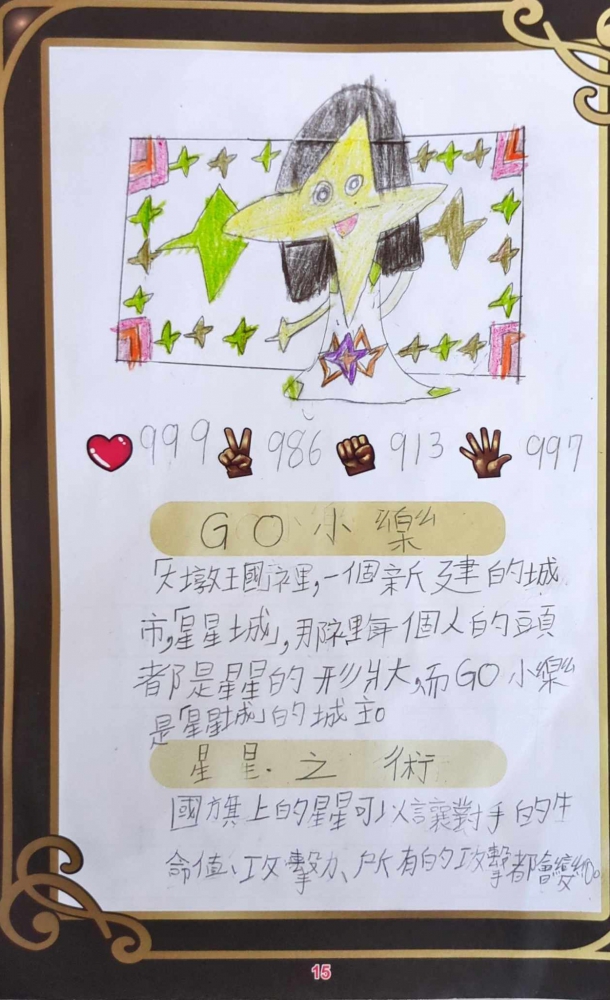 999 986 913 997
GO小樂
「大墩王國」裡,一個新建的城
市,「星星城」,那裡每個人的頭
都是星星的形狀,而GO小樂
是「星星城」的城主。
星星之術
國旗上的星星可以讓對手的生
命值、攻擊力、所有的攻擊都會變0。
15